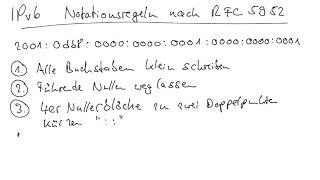 IPv6 Notationsregeln nach RFC 5952
2001:0dB8:0000:0000:0001:0000:0000:0001
① Alle Buchstaben klein schreiben
② Führende Nullen weglassen
③ 4er Nullerblöcke zu zwei Doppelpunkten
kürzen "::"